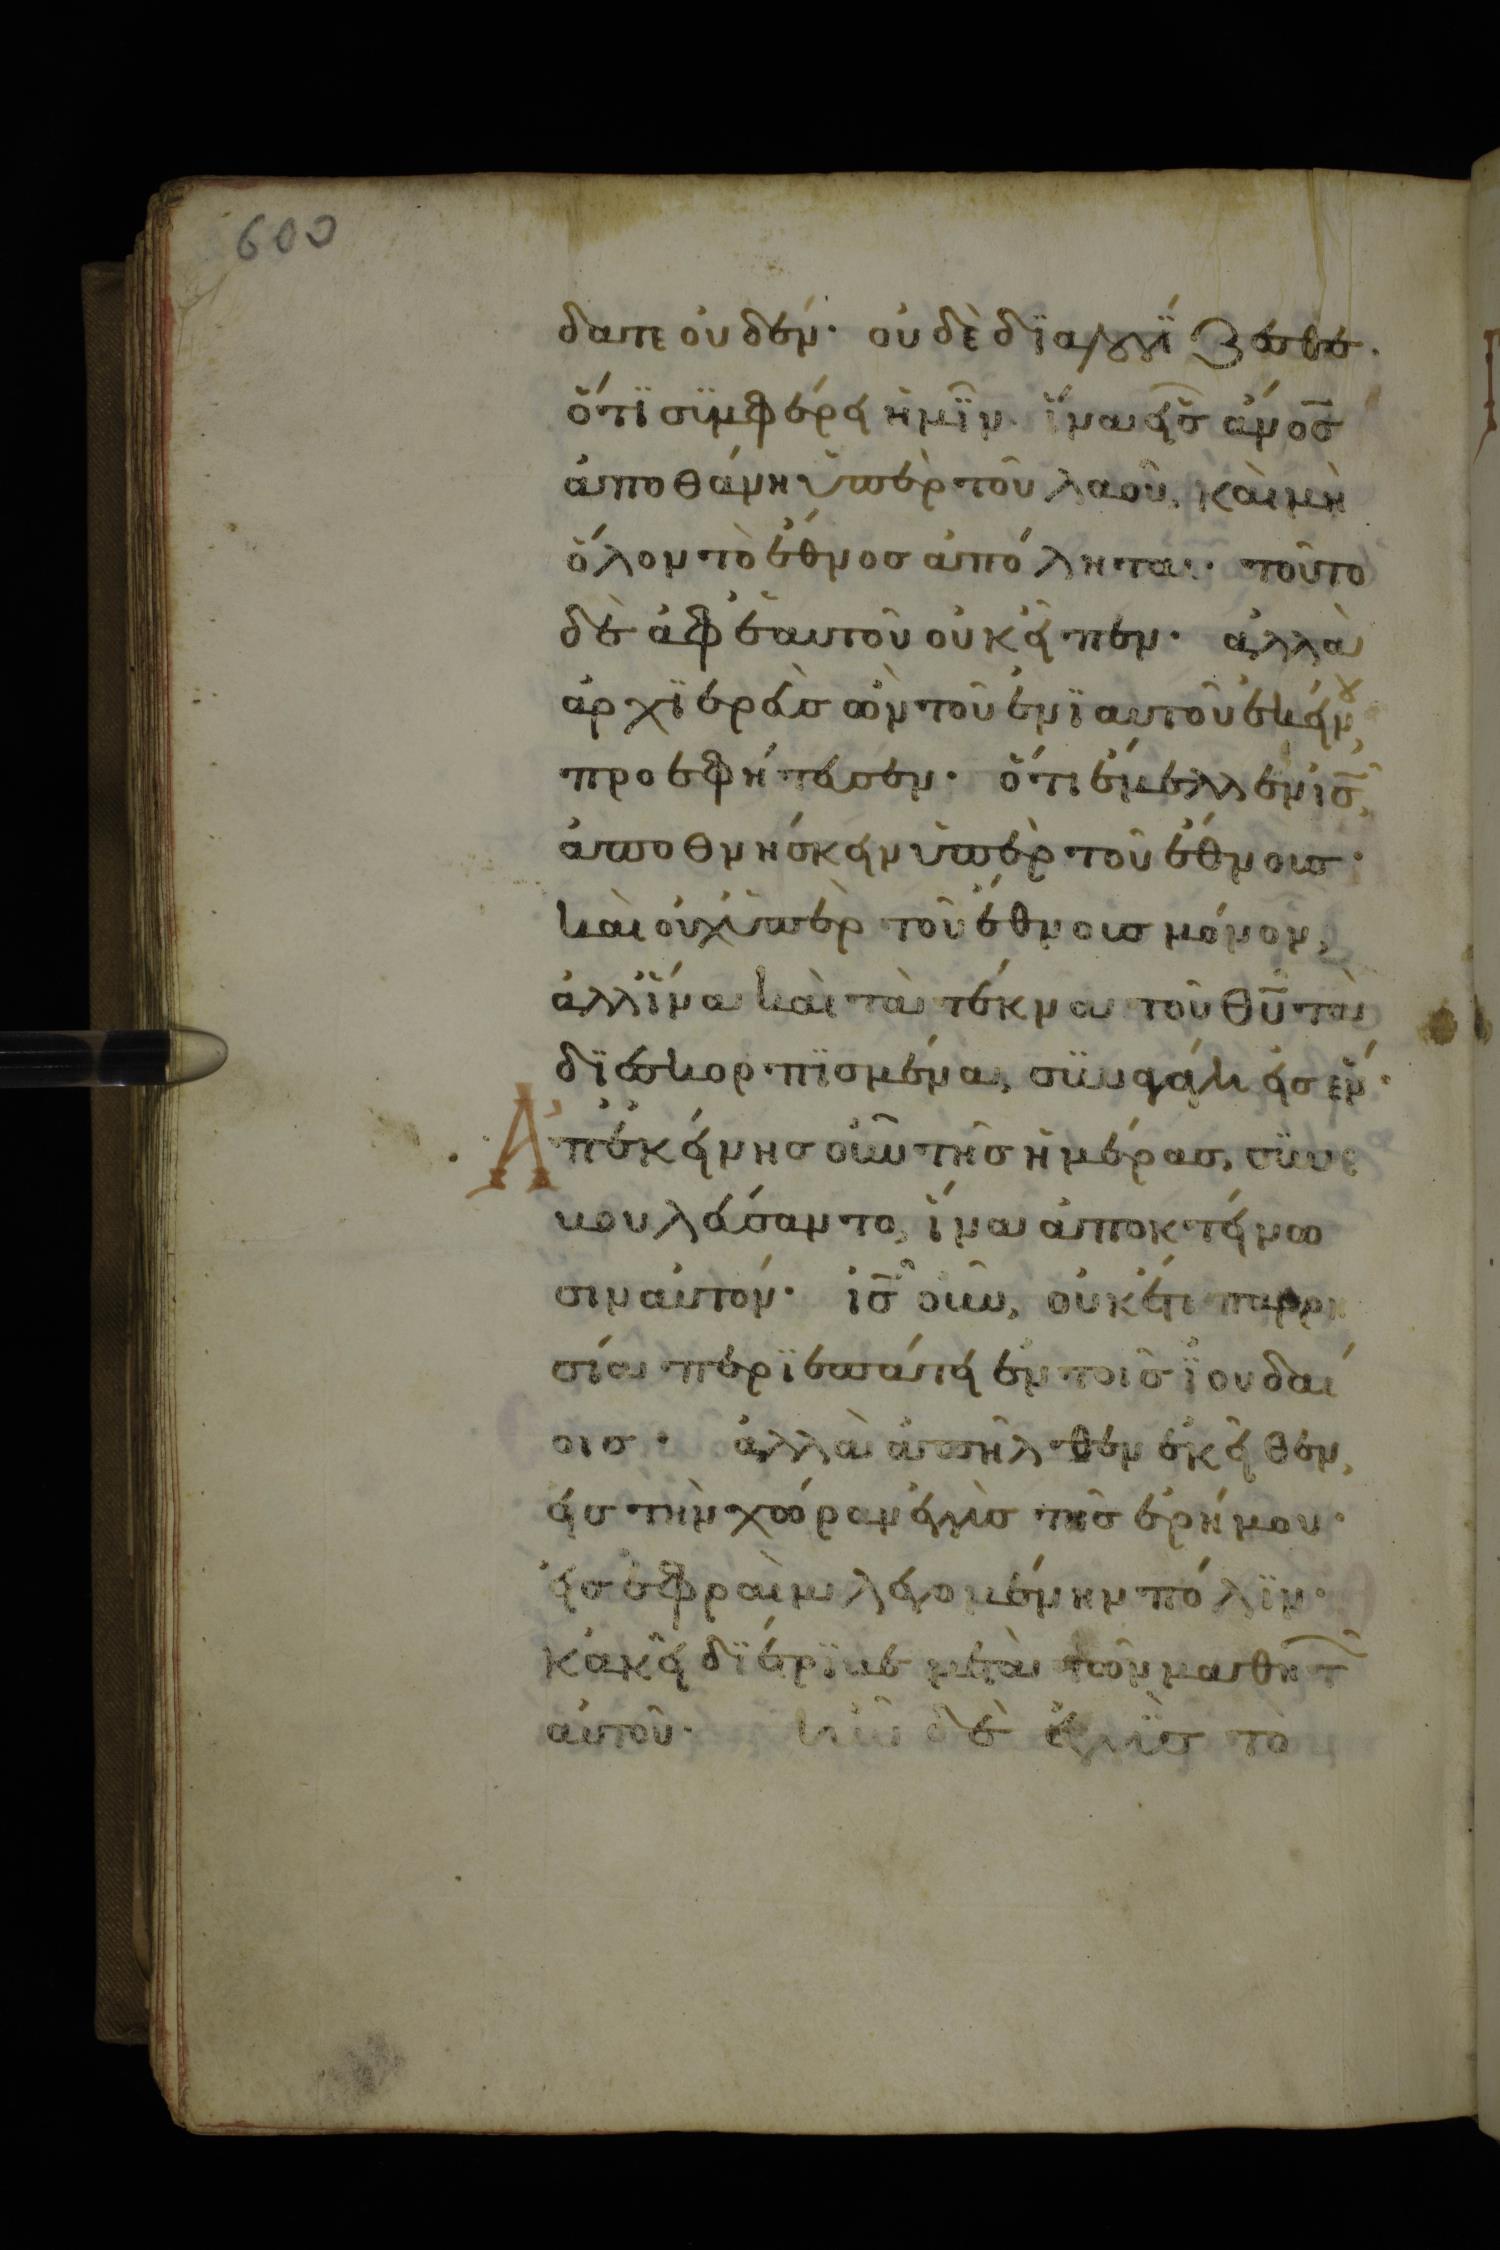 600
δατε οὐδέν· οὐδὲ διαλογίζεσθε·
ὅτι συμφέρει ἡμῖν ἵνα εἷς ἄνος
ἀποθάνη ὑπὲρ τοῦ λαοῦ, καὶ μὴ
ὅλον τὸ ἔθνος ἀπόληται· τοῦτο
δὲ ἀφ ἑαυτοῦ οὐκ εἶπεν· ἀλλὰ
ἀρχιερεὺς ὢν τοῦ ἐνιαυτοῦ ἐκείνου,
προεφήτευσεν· ὅτι ἔμελλεν ις
ἀποθνήσκειν ὑπὲρ τοῦ ἔθνους·
καὶ οὐχ ὑπὲρ τοῦ ἔθνους μόνον,
ἀλλ ἵνα καὶ τὰ τέκνα τοῦ θυ τὰ
διεσκορπισμένα, συναγάγη εἰς ἕν·
Ἀπ ἐκείνης οὖν τῆς ἡμέρας, συνε
βουλεύσαντο, ἵνα ἀποκτείνω
σιν αὐτόν· ις οὖν, οὐκέτι παρρη
σία περιεπάτει ἐν τοῖς ἰουδαί
οις· ἀλλὰ ἀπῆλθεν ἐκεῖθεν,
εἰς τὴν χώραν ἐγγὺς τῆς ἐρήμου·
εἰς ἐφραὶμ λεγομένην πόλιν·
κἀκεῖ διέτριβε μετὰ τῶν μαθητ
αὐτοῦ· ἦν δὲ ἐγγὺς τὸ